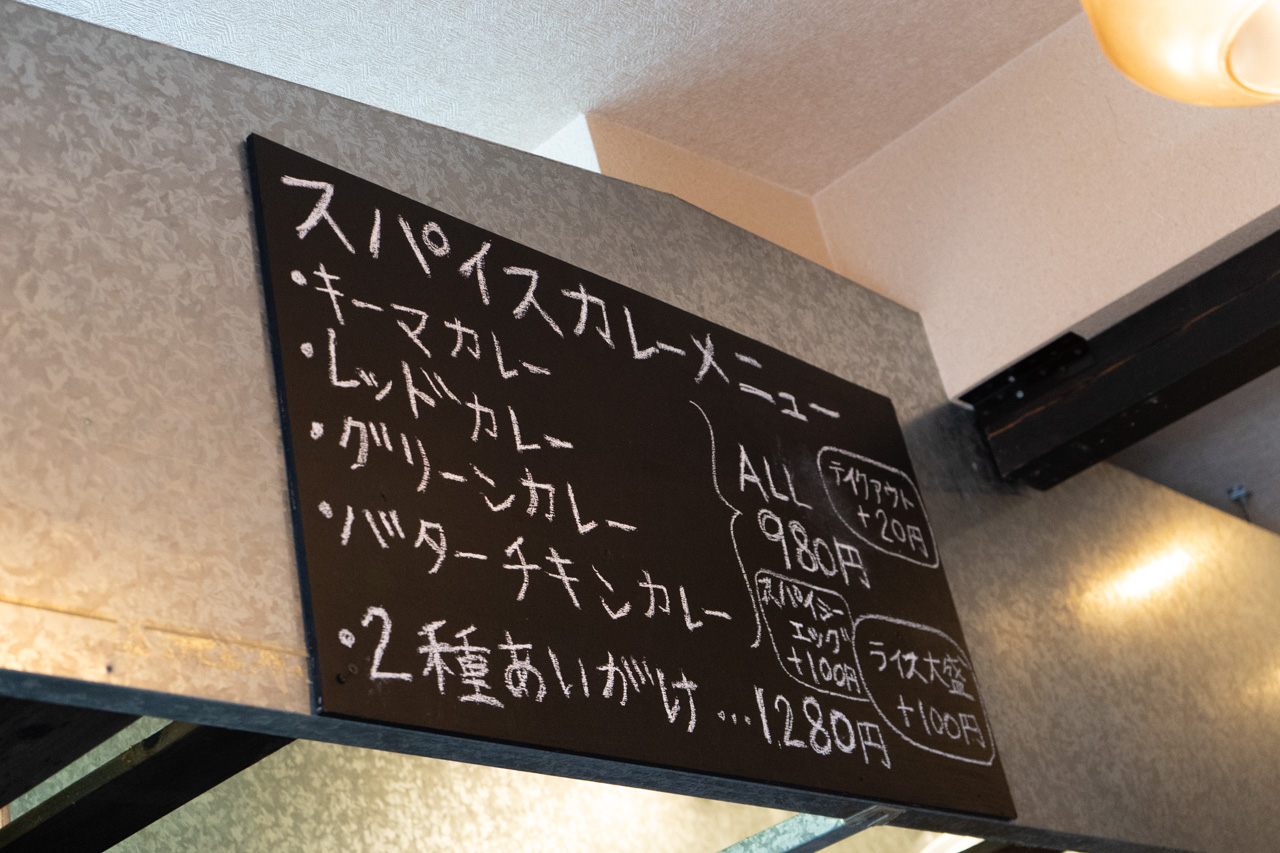 スパイスカレーメニュー
・キーマカレー
・レッドカレー
・グリーンカレー
・バターチキンカレー
ALL
980円
テイクアウト
+20円
スパイシー
エッグ
+100円
ライス大盛
+100円
・2種あいがけ…1280円